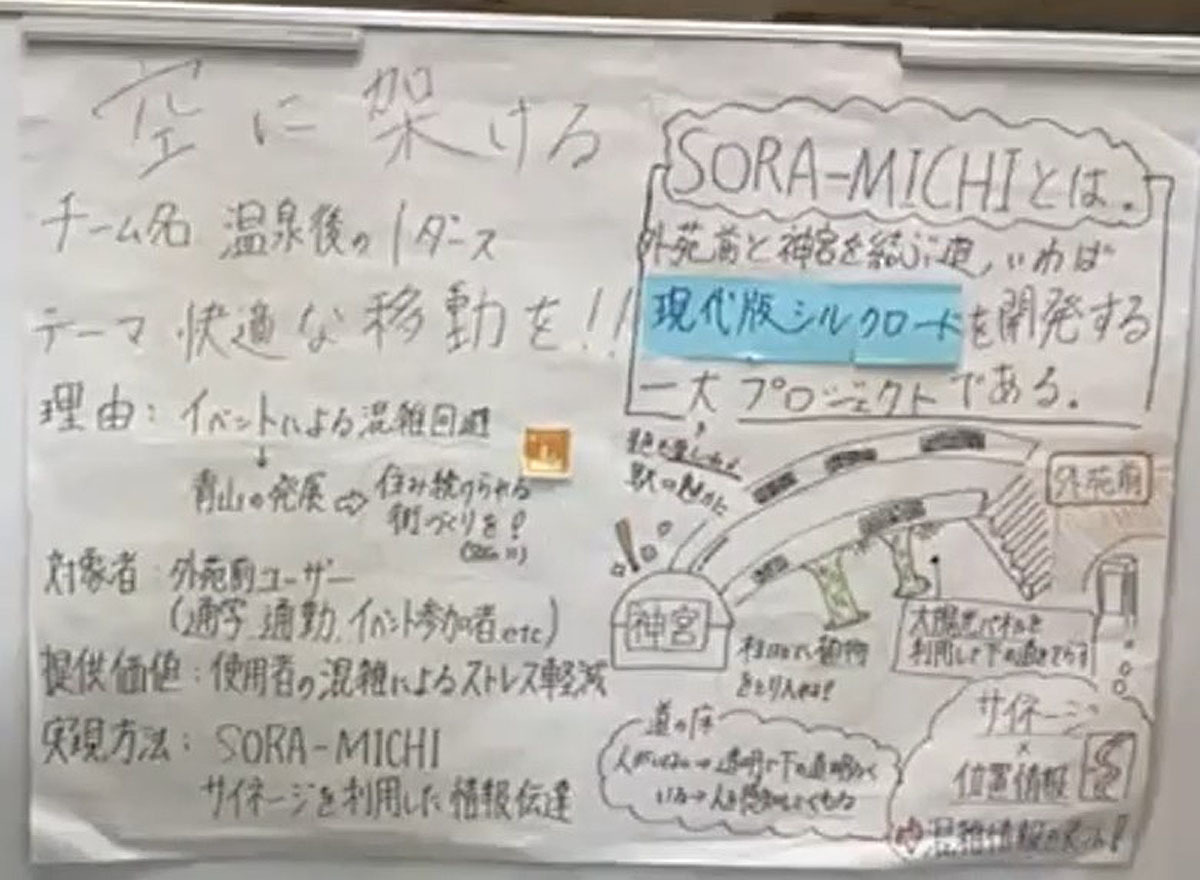 空に架ける
チーム名 温泉後の1ダース
テーマ 快適な移動を!!
理由：イベントによる混雑回避
↓
青山の発展 ⇨ 住み続けられる
街づくりを!
対象者：外苑前ユーザー
(通学、通勤、イベント参加者、etc)
提供価値：使用者の混雑によるストレス軽減
実現方法：SORA-MICHI
サイネージを利用した情報伝達
SORA-MICHIとは.
外苑前と神宮を結ぶ道、いわば
現代版シルクロードを開発する
一大プロジェクトである.
外苑前
神宮
柱には植物
をとり入れる!
太陽光パネルを
利用して下の道をてらす
道の床
人がいない→透明で下の道明るく
いる→人を感知してくもる
サイネージ
×
位置情報
混雑情報